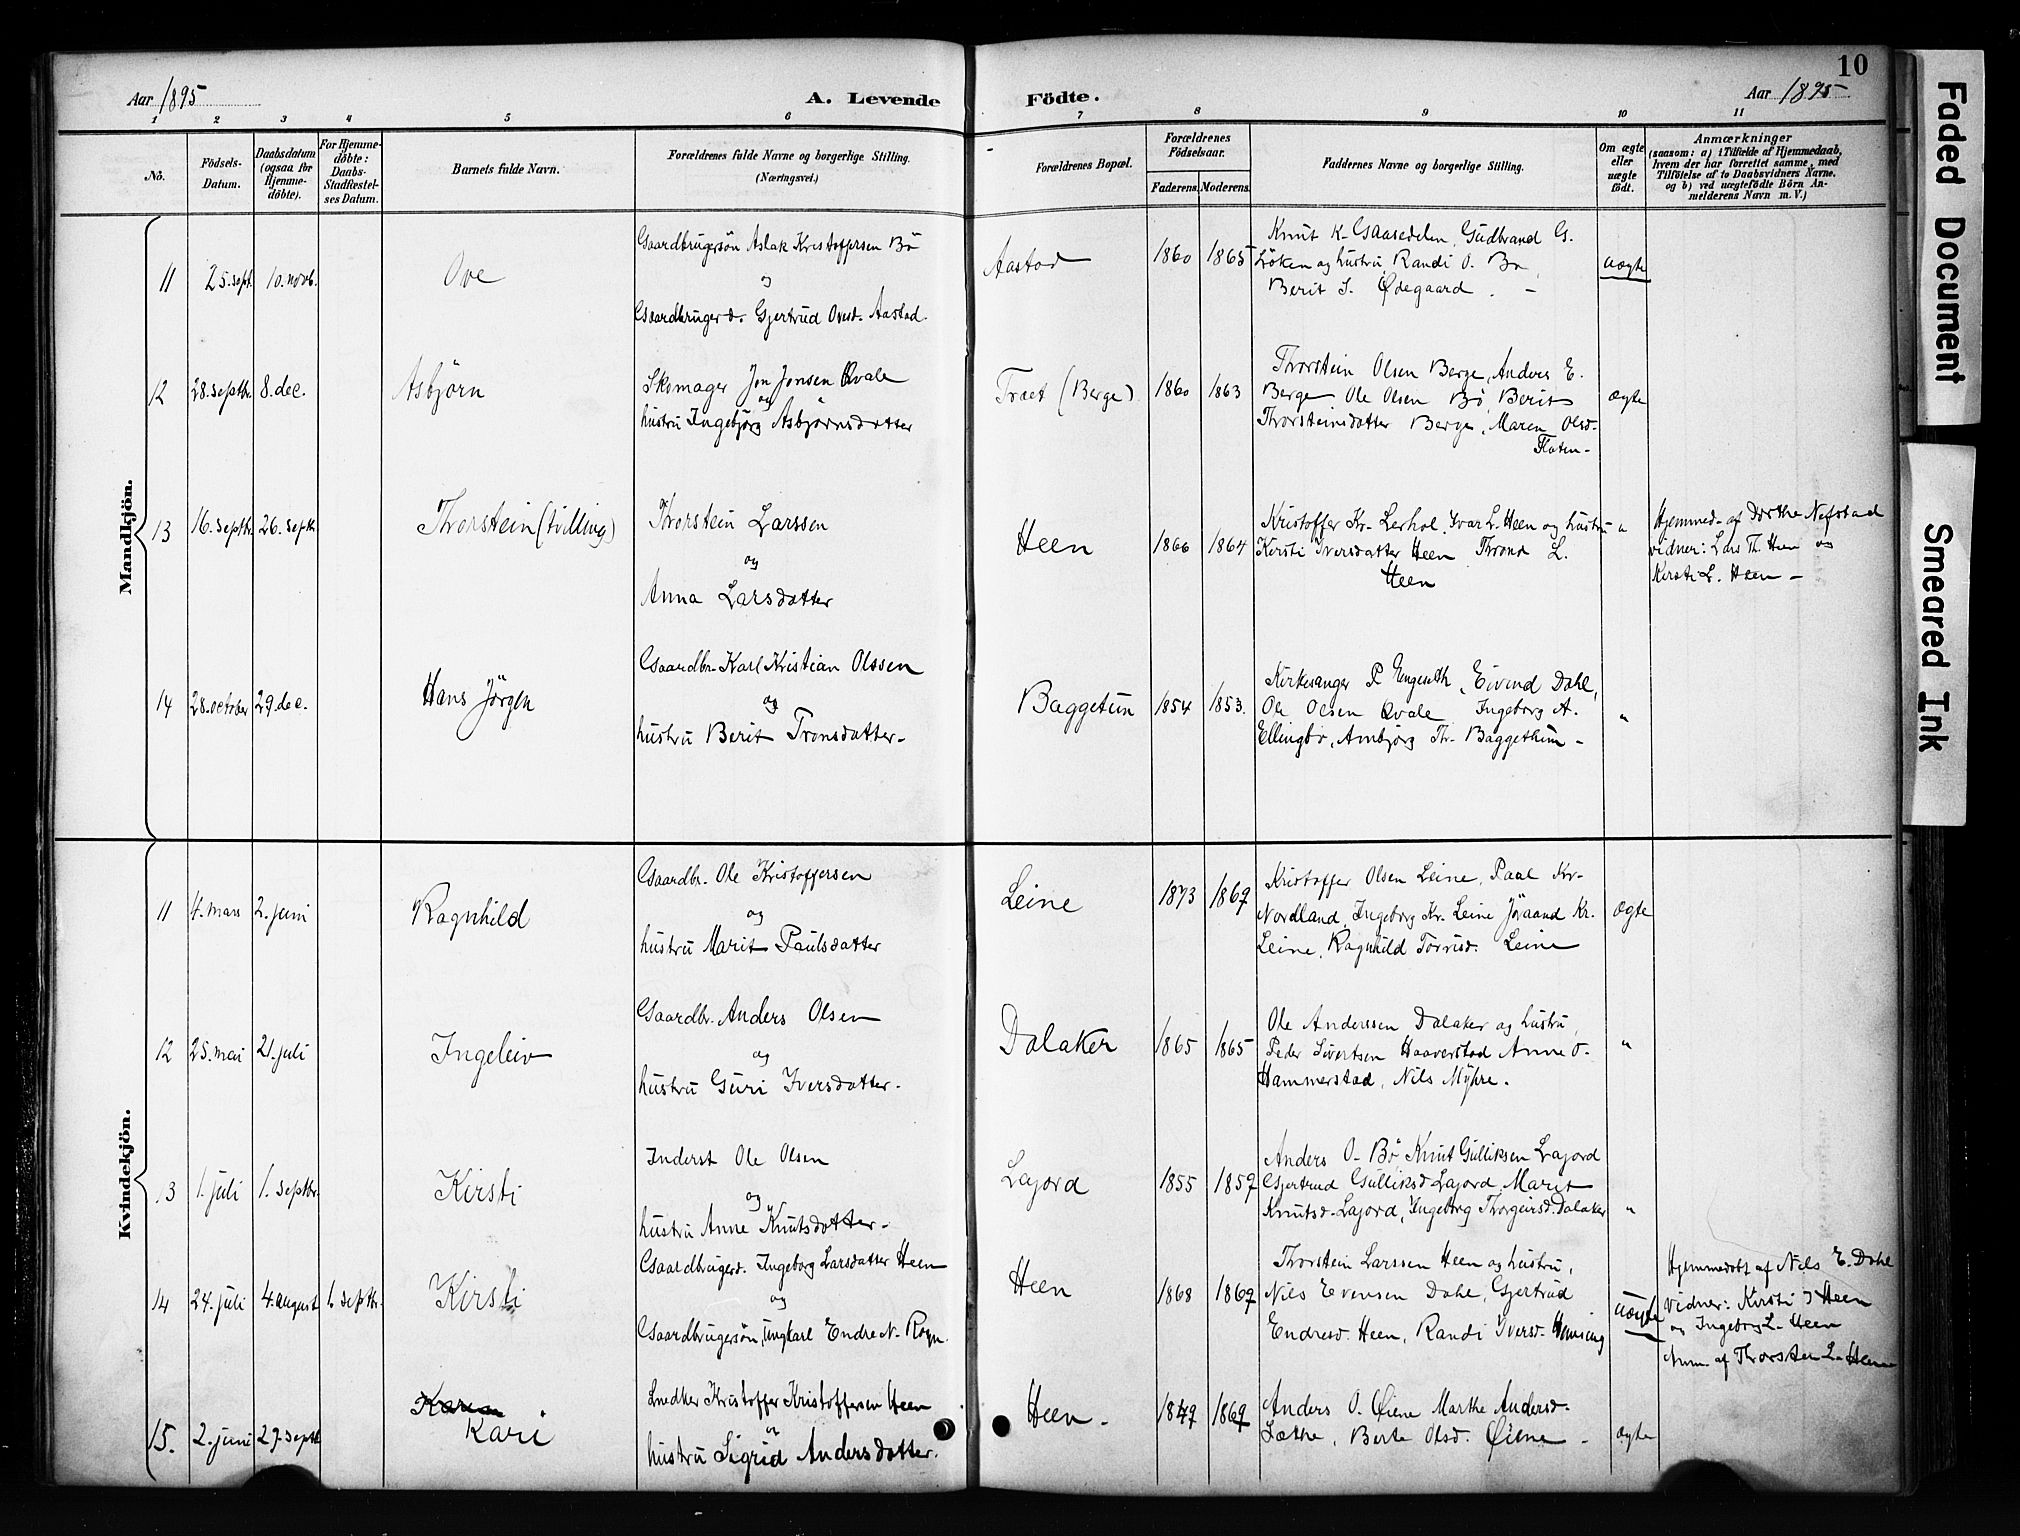 10
Aar 1895
A. Levende Födte.
Aar 1895
1 2 3 4 5 6 7 8 9 10 11
No.
Födsels-Datum.
Daabsdatum (ogsaa for Hjemme-döbte).
For Hjemme-döbte: Daabs-Stadfæstel-ses Datum.
Barnets fulde Navn.
Forældrenes fulde Navne og borgerlige Stilling.
(Næringsvei.)
Forældrenes Bopæl.
Forældrenes Födselsaar.
Faderens. Moderens.
Faddernes Navne og borgerlige Stilling.
Om ægte eller uægte födt.
Anmærkninger
(saasom: a) i Tilfælde af Hjemmedaab,
hvem der har forrettet samme, med
Tilföielse af to Daabsvidners Navne.
og b) ved uægtefödte Börn An-
melderens Navn m. V.)
Mandkjön.
11 25. sept. 10. novb. Ove
Gaardbrugersön Aslak Kristoffersen Bö
og
Gaardbruger d. Gjertrud Ovesd. Aastad.
Aastad 1860 1865
Knut K. Gaasedelen, Gudbrand G.
Löken og hustru, Randi O. Bö,
Berit S. Ødegaard. –
uægte
12 28. septbr. 8. dec. Asbjörn
Skomager Jon Jonsen Qvale
og
hustru Ingebjörg Asbjörnsdatter
Traet (Berge) 1860 1863
Thorstein Olsen Berge, Anders E.
Berge Ole Olsen Bö, Berit
Thorsteinsdatter Berge, Maren Olsd.
Floten –
ægte
13 16. septbr. 26. septb. Thorstein (tvilling)
Thorstein Larssen
og
Anna Larsdatter
Heen 1866 1864
Kristoffer Kr. Lerhol. Ivar L. Heen og hustru
Kirsti Iversdatter Heen Thrond L.
Heen
"
Hjemmed. af Dorthe Nefstad
vidner: Lars Th. Heen og
Kirsti L. Heen –
14 28. october 29. dec. Hans Jörgen
Gaardbr. Karl Kristian Olssen
og
hustru Berit Tronsdatter –
Baggetun 1854 1853.
Kirkesanger P. Engeseth, Eivind Dahl,
Ole Olsen Qvale Ingeborg A.
Ellingbö, Ambjörg Th. Baggethun –
"
Kvindekjön.
11 4. mars 2. juni Ragnhild
Gaardbr. Ole Kristoffersen
og
hustru Marit Paulsdatter
Leine 1873 1867
Kristoffer Olsen Leine, Paal Kr.
Nordland, Ingeborg Kr. Leine Jöraand Kr.
Leine, Ragnhild Torrisd. Leine
ægte
12 25. mai 21. juli Ingeleiv
Gaardbr. Anders Olsen
og
hustru Guri Iversdatter.
Dalaker 1865 1865
Ole Anderssen Dalaker og hustru,
Peder Sivertsen Haaverstad Anne O.
Hammerstad, Nils Myhre.
"
13 1. juli 1. septbr. Kirsti
Inderst Ole Olsen
og
hustru Anne Knutsdatter –
Lajord 1855 1857
Anders O. Bö Knut Gulliksen Lajord
Gjertrud Gulliksd. Lajord, Marit
Knutsd. Lajord, Ingeborg Thorgeirsd. Dalaker
"
14 24. juli 4. august 6 septbr. Kirsti
Gaardbrugerd. Ingeborg Larsdatter Heen
og
Gaardbrugersön, Ungkarl Endre N. Rogn.
Heen 1868 1867
Thorstein Larssen Heen og hustru,
Nils Evensen Dahl, Gjertrud
Endresd. Heen, Randi Iversd. Hemsing
uægte
Hjemmedöbt af Nils E. Dahl
vidner: Kirsti I Heen
og Ingeborg L. Heen
Anm. af Thorsten L. Heen
15. 2. juni 29. septb. Karen Kari
Snedker Kristoffer Kristoffersen Heen
og
hustru Sigrid Andersdatter.
Heen – 1849 1867
Anders O. Øiene Marthe Andersd.
Læthe, Berte Olsd. Øiene –
ægte
Faded Document
Smeared Ink